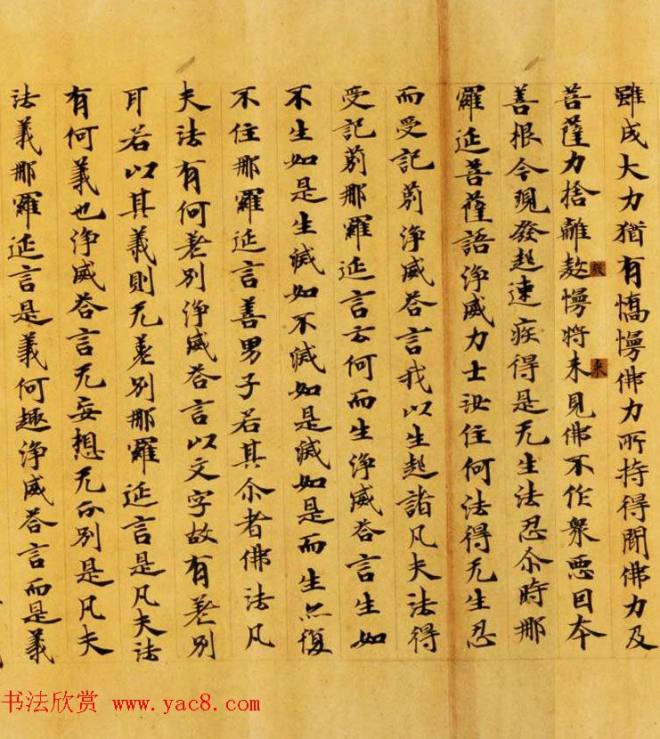 雖成大力猶有憍慢佛力所持得聞佛力及
菩薩力捨離敖慢將未見佛不作衆悪因本
来
善根今現發起速疾得是无生法忍尒時那
羅延菩薩語淨威力士汝住何法得无生忍
而受記莂淨威荅言我以生起諸凡夫法得
受記莂那羅延言云何而生淨威荅言生如
不生如是生滅如不滅如是滅如是而生無復
不住那羅延言善男子若其尒者佛法凡
夫法有何差別淨威荅言以文字故有差別
耳若以其義則无差別那羅延言是凡夫法
有何義也淨威荅言无妄想无分別是凡夫
法義那羅延言是義何趣淨威荅言而是義
书法欣赏 www.yac8.com